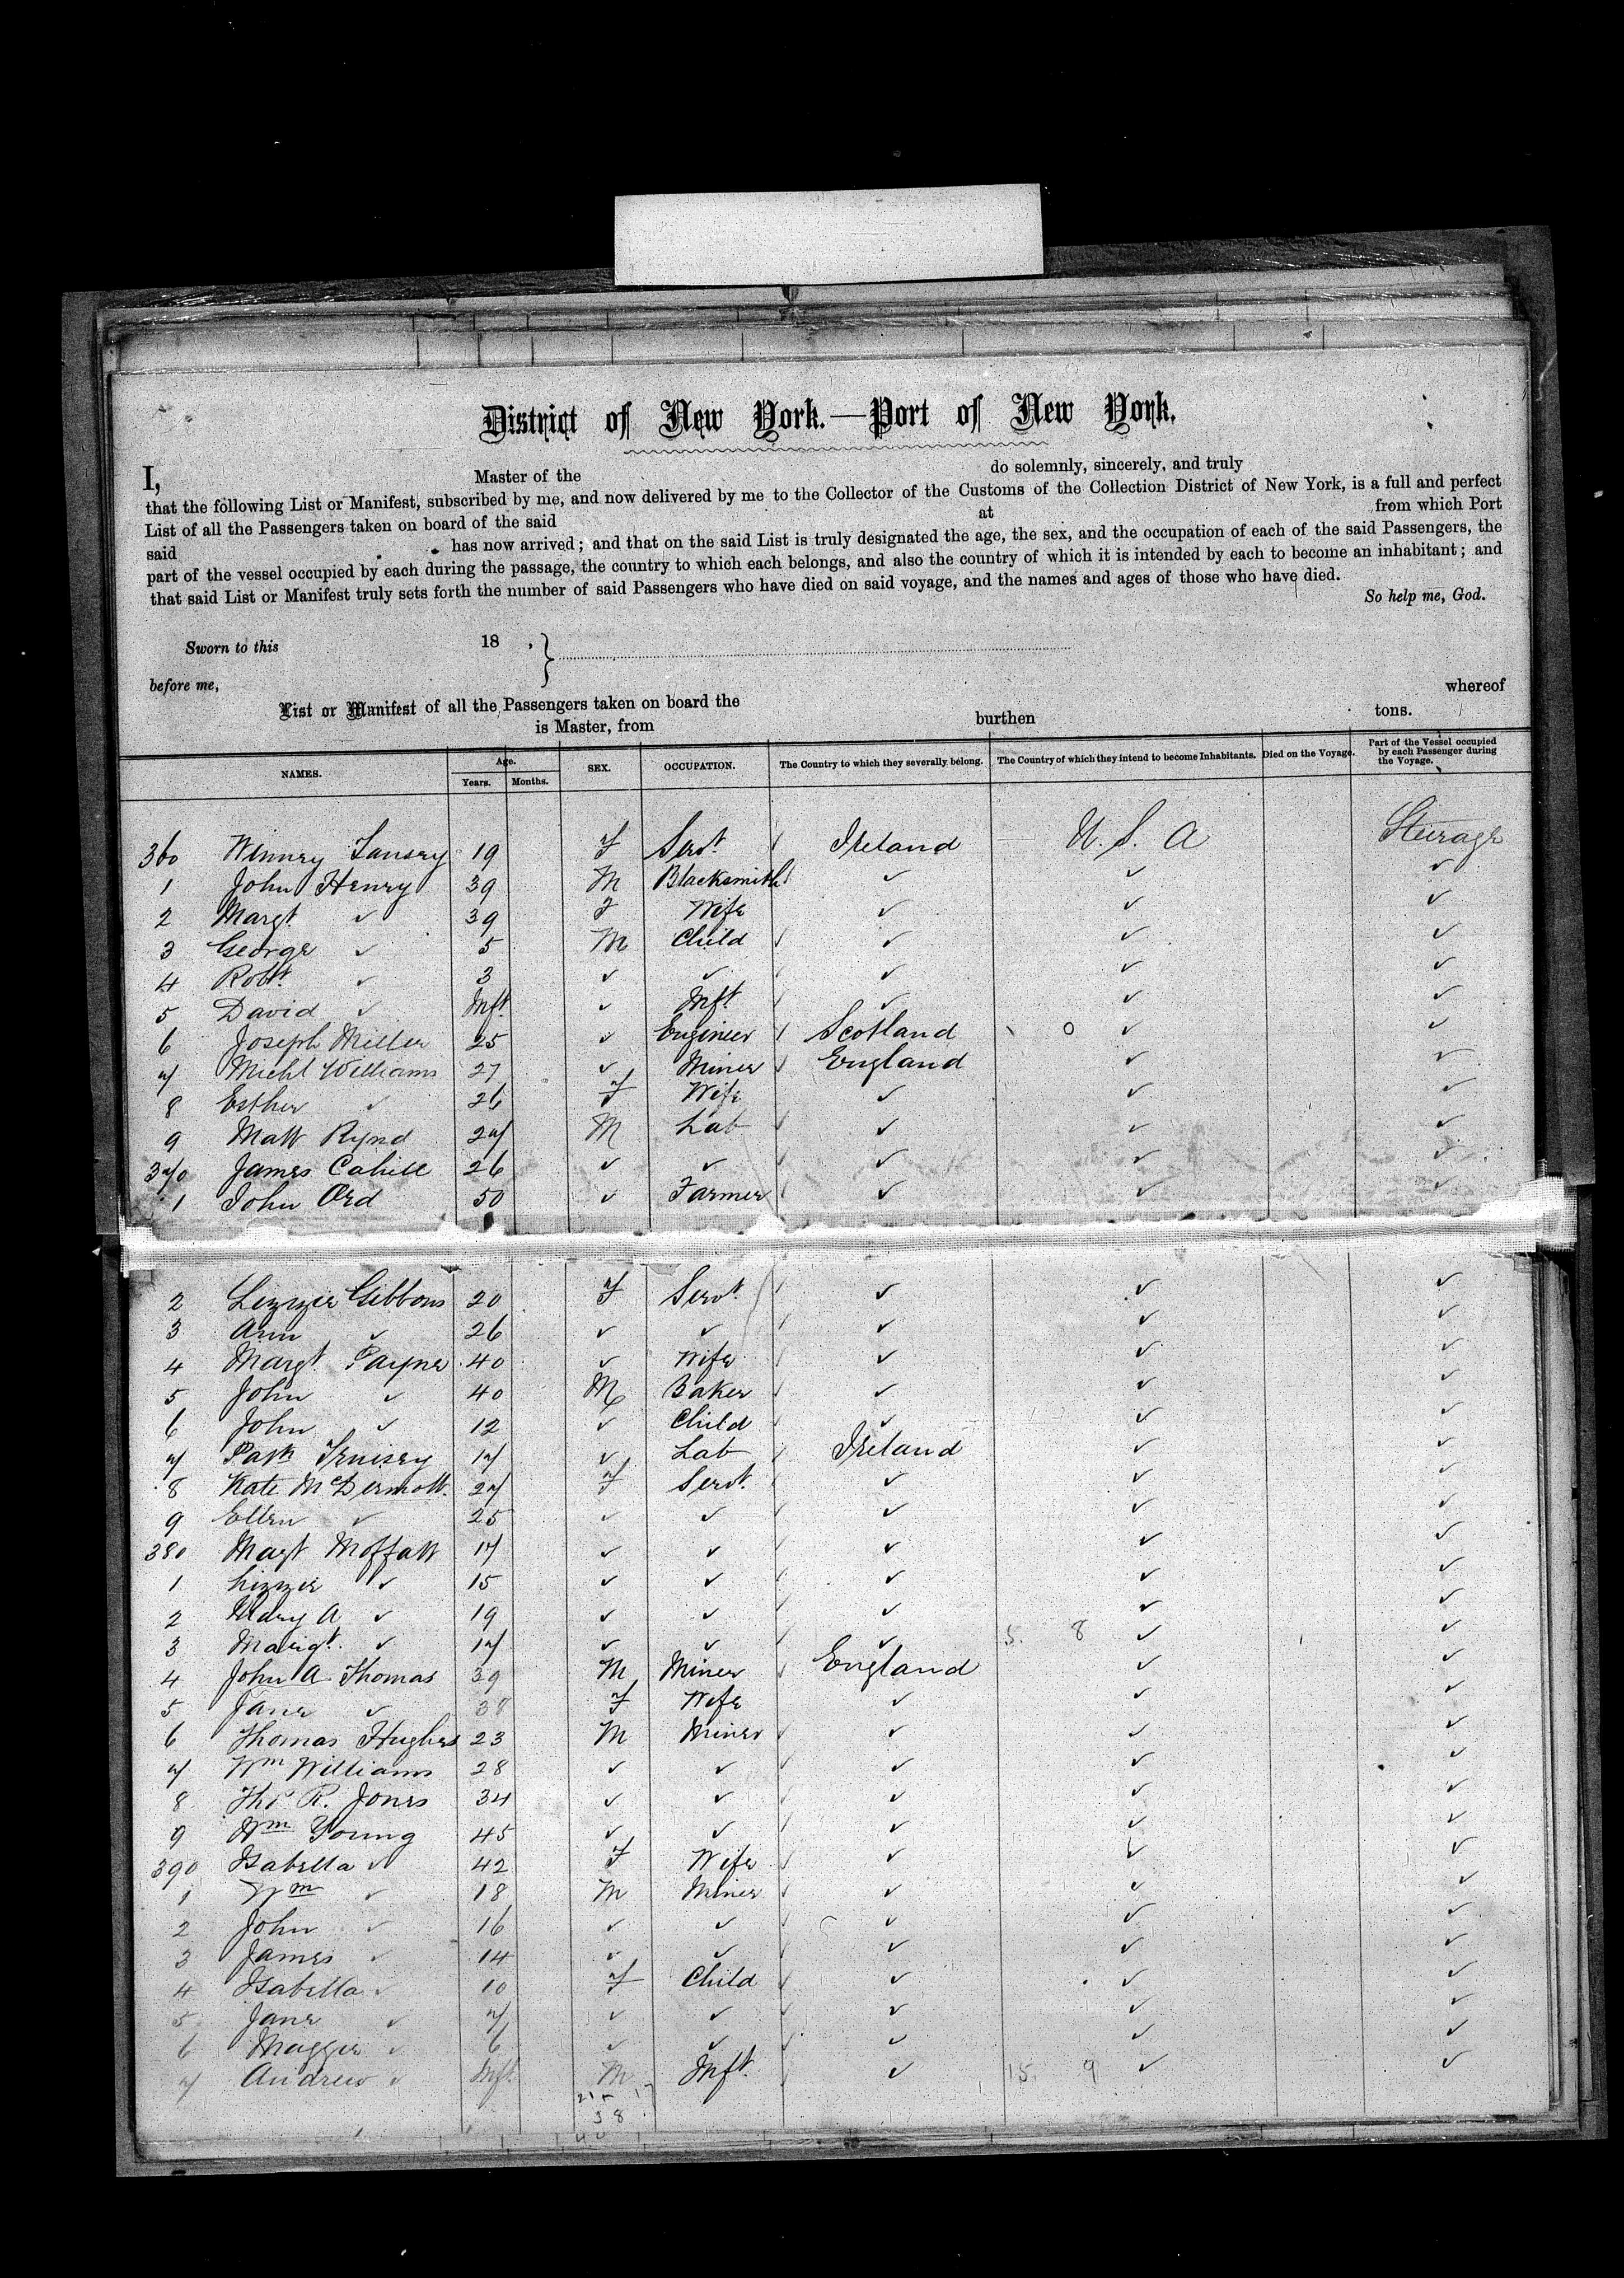 District of New York.—Port of New York.
I, Master of the do solemnly, sincerely, and truly
that the following List or Manifest, subscribed by me, and now delivered by me to the Collector of the Customs of the Collection District of New York, is a full and perfect
List of all the Passengers taken on board of the said at from which Port
said has now arrived; and that on the said List is truly designated the age, the sex, and the occupation of each of the said Passengers, the
part of the vessel occupied by each during the passage, the country to which each belongs, and also the country of which it is intended by each to become an inhabitant; and
that said List or Manifest truly sets forth the number of said Passengers who have died on said voyage, and the names and ages of those who have died.
So help me, God.
Sworn to this 18 , }
before me,
List or Manifest of all the Passengers taken on board the whereof
is Master, from burthen tons.
NAMES. Age. Years. Months. SEX. OCCUPATION. The Country to which they severally belong. The Country of which they intend to become Inhabitants. Died on the Voyage. Part of the Vessel occupied by each Passenger during the Voyage.
360 Winnry 19 F Servt. Ireland U. S. A Steerage
1 John Henry 39 M Blacksmith ✓ ✓ ✓
2 Margt ✓ 39 F Wife ✓ ✓ ✓
3 George ✓ 5 M Child ✓ ✓ ✓
4 Robt. ✓ 3 ✓ ✓ ✓ ✓ ✓
5 David ✓ Inft. ✓ Inft. ✓ ✓ ✓
6 Joseph Miller 25 ✓ Engineer Scotland 0 ✓ ✓
7 Michl Williams 27 ✓ Miner England ✓ ✓
8 Esther ✓ 26 F Wife ✓ ✓ ✓
9 Matt Rynd 27 M Lab ✓ ✓ ✓
370 James Cahill 26 ✓ ✓ ✓ ✓ ✓
1 John Ord 50 ✓ Farmer ✓ ✓ ✓
2 Lizzie Gibbons 20 F Servt. ✓ ✓ ✓
3 Ann ✓ 26 ✓ ✓ ✓ ✓ ✓
4 Margt. Payne 40 ✓ Wife ✓ ✓ ✓
5 John ✓ 40 M Baker ✓ ✓ ✓
6 John ✓ 12 ✓ Child ✓ ✓ ✓
7 Patk 17 ✓ Lab Ireland ✓ ✓
8 Kate McDermott. 27 F Servt. ✓ ✓ ✓
9 Ellen ✓ 25 ✓ ✓ ✓ ✓ ✓
380 Margt Moffatt 17 ✓ ✓ ✓ ✓ ✓
1 Lizzie ✓ 15 ✓ ✓ ✓ ✓ ✓
2 Mary A ✓ 19 ✓ ✓ ✓ ✓ ✓
3 Margt. ✓ 17 ✓ ✓ ✓ 5. 8 ✓ ✓
4 John A Thomas 39 M Miner England ✓ ✓
5 Jane ✓ 38 F Wife ✓ ✓ ✓
6 Thomas Hughes 23 M Miner ✓ ✓ ✓
7 Wm Williams 28 ✓ ✓ ✓ ✓ ✓
8 Ths. R. Jones 34 ✓ ✓ ✓ ✓ ✓
9 Wm Young 45 ✓ ✓ ✓ ✓ ✓
390 Isabella ✓ 42 F Wife ✓ ✓ ✓
1 Wm ✓ 18 M Miner ✓ ✓ ✓
2 John ✓ 16 ✓ ✓ ✓ ✓ ✓
3 James ✓ 14 ✓ ✓ ✓ ✓ ✓
4 Isabella ✓ 10 F Child ✓ ✓ ✓
5 Jane ✓ 7 ✓ ✓ ✓ ✓ ✓
6 Maggie ✓ 6 ✓ ✓ ✓ ✓ ✓
7 Andrew ✓ Inft. M Inft. ✓ 15. 9 ✓ ✓
38